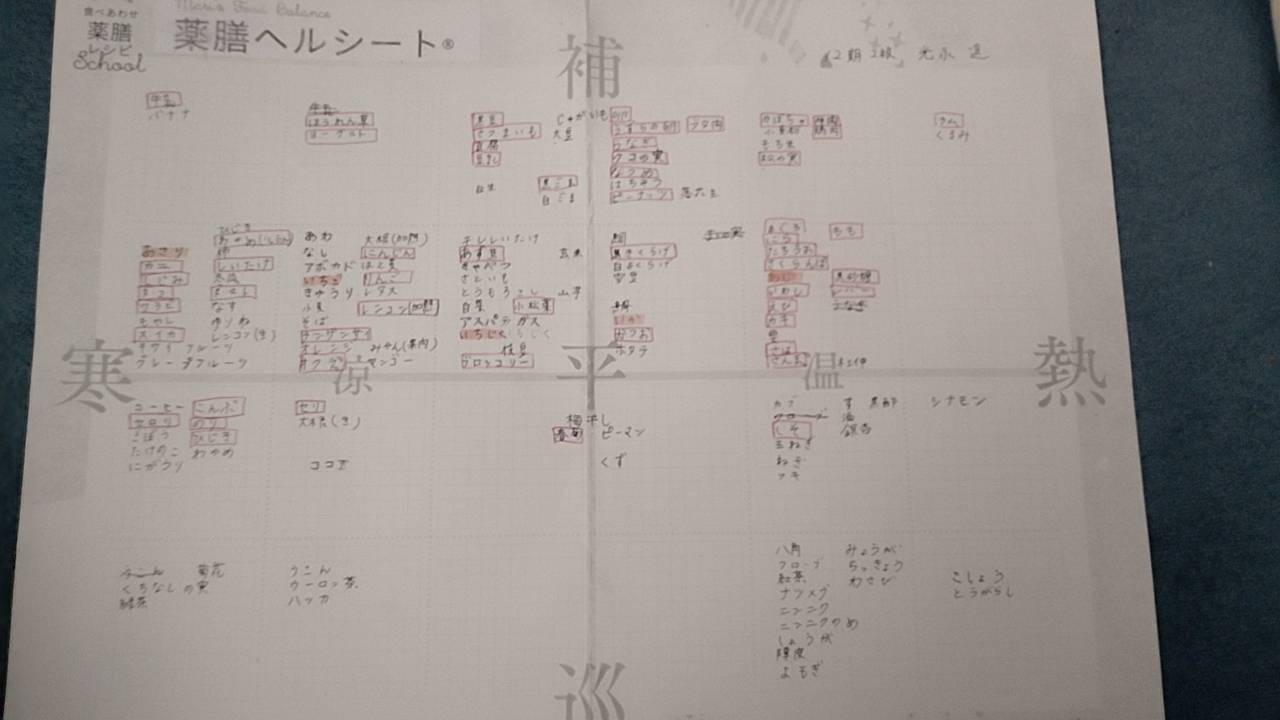 食べあわせ
薬膳
レシピ
School
薬膳ヘルシート®
補
2期
牛乳
バナナ
ほうれん草
ヨーグルト
黒豆
さつまいも
豆腐
豆乳
じゃがいも
大豆
黒ごま
白ごま
卵
うずらの卵
ブタ肉
うなぎ
クコの実
なつめ
はちみつ
ピーナッツ
落花生
かぼちゃ
鶏肉
小麦粉
もち米
松の実
ラム
くるみ
あさり
カニ
しじみ
もやし
スイカ
グレープフルーツ
ひじき
柿
しいたけ
なす
ゆりね
レンコン(生)
あわ
なし
アボカド
いちご
きゅうり
小麦
そば
チンゲンサイ
オレンジ
オクラ
大根(加熱)
にんじん
はと麦
りんご
レタス
レンコン(加熱)
みかん(果肉)
マンゴー
干ししいたけ
あずき
きゃべつ
さといも
とうもろこし
白菜
小松菜
アスパラガス
いちじく
枝豆
ブロッコリー
玄米
山芋
黒きくらげ
白きくらげ
空豆
いか
かつお
ホタテ
まぐろ
にら
たちうお
さくらんぼ
あじ
いわし
えび
さば
さんま
もも
黒砂糖
寒
涼
平
温
熱
コーヒー
セロリ
ごぼう
たけのこ
にがうり
こんぶ
のり
ひじき
わかめ
セリ
大根(生)
ココア
梅干し
春菊
ピーマン
くず
カブ
しそ
玉ねぎ
ねぎ
フキ
す
酒
シナモン
菊花
くちなしの実
緑茶
うこん
ウーロン茶
ハッカ
八角
クローブ
紅茶
ナツメグ
ニンニク
ニンニクのめ
しょうが
陳皮
よもぎ
みょうが
らっきょう
わさび
こしょう
とうがらし
巡